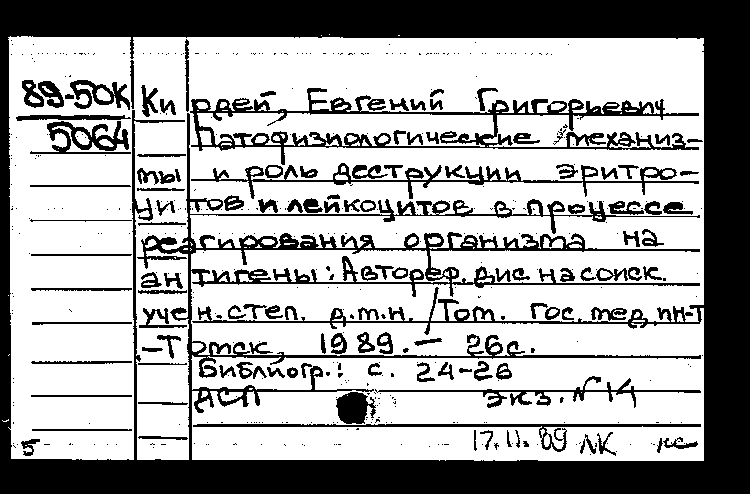 89-50К
5064
Кирдей, Евгений Григорьевич
Патофизиологические механиз-
мы и роль деструкции эритро-
цитов и лейкоцитов в процессе
реагирования организма на
антигены: Автореф. дис. на соиск.
учен. степ. д.м.н. / Том. гос. мед. ин-т
.-Томск, 1989. - 26с.
Библиогр.: с. 24-26
ДСП экз. №14
17.11.89 ЛК
5